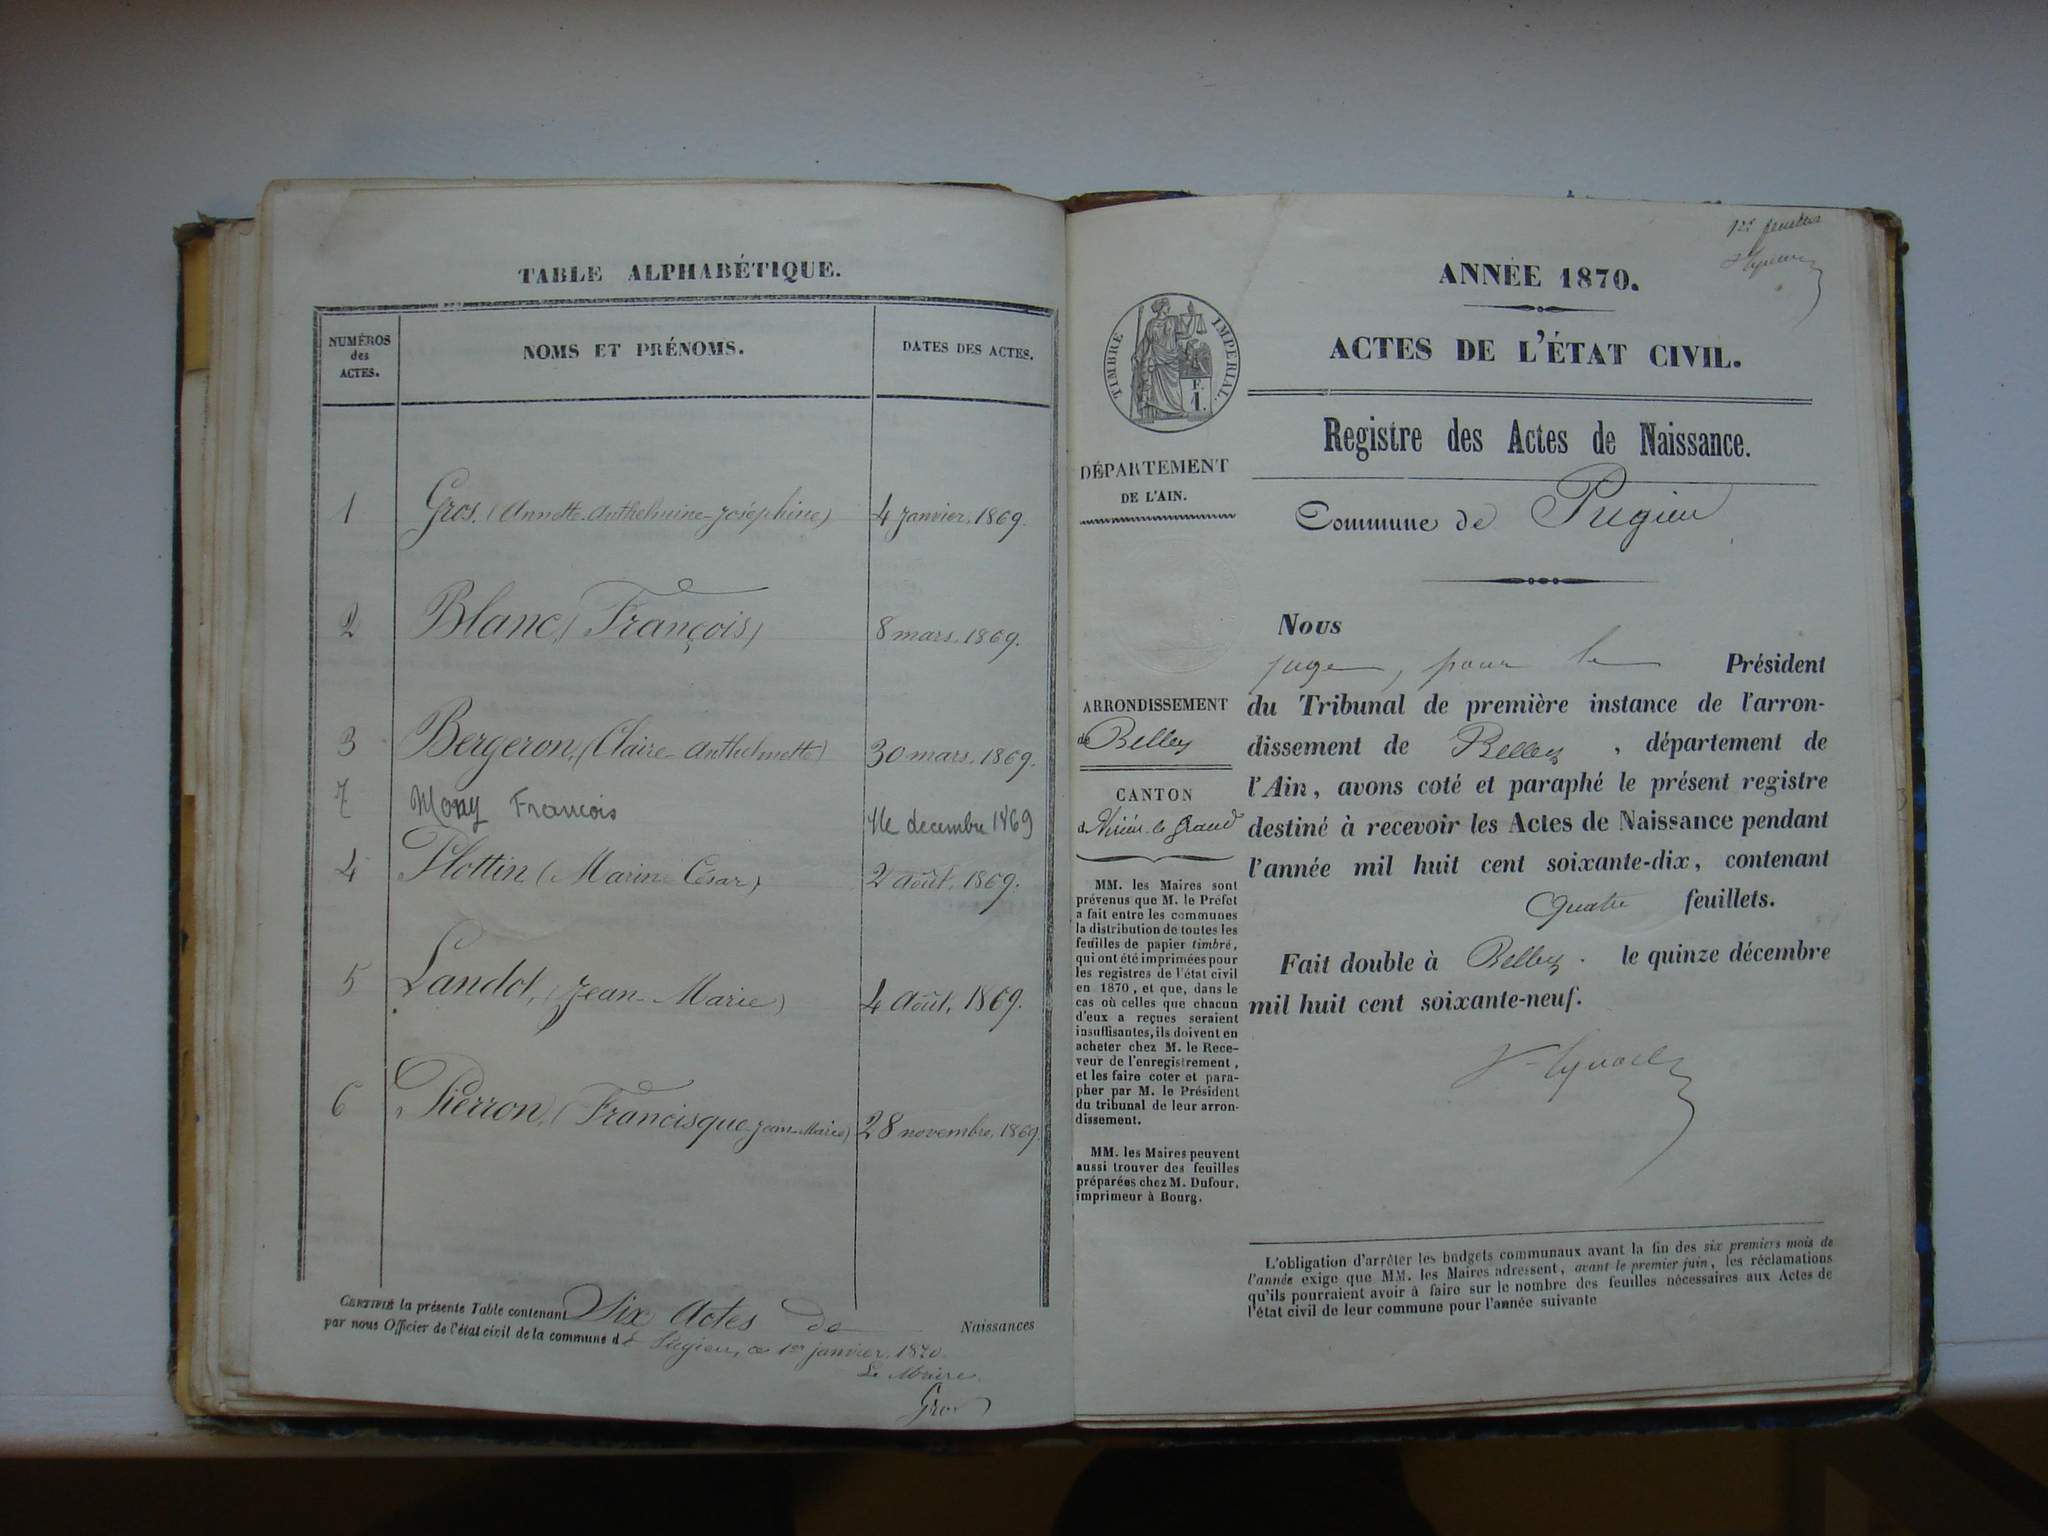 TABLE ALPHABÉTIQUE.
NUMÉROS
des
ACTES.
NOMS ET PRÉNOMS.
DATES DES ACTES.
1 Gros. (Annette-Anthelmine-Joséphine) 4 Janvier, 1869.
2 Blanc, (François) 8 mars, 1869.
3 Bergeron, (Claire-Anthelmette) 30 mars, 1869.
7 Mony Francois décembre 1869
4 (Marin César) 2 Août, 1869.
5 Landot, (Jean-Marie) 4 Août, 1869.
6 Pierron, (Francisque-Jean-Marie) 28 novembre, 1869.
CERTIFIÉ la présente Table contenant Six Actes de Naissances
par nous Officier de l'état civil de la commune de Pugieu, ce 1er janvier 1870.
Le Maire
Gros
ANNÉE 1870.
ACTES DE L'ÉTAT CIVIL.
TIMBRE IMPERIAL.
F.
1.
Registre des Actes de Naissance.
DÉPARTEMENT
DE L'AIN.
Commune de Pugieu
Nous
juge, pour le Président
du Tribunal de première instance de l'arron-
dissement de Belley, département de
l'Ain, avons coté et paraphé le présent registre
destiné à recevoir les Actes de Naissance pendant
l'année mil huit cent soixante-dix, contenant
Quatre feuillets.
Fait double à Belley. le quinze décembre
mil huit cent soixante-neuf.
ARRONDISSEMENT
de Belley
CANTON
de Virieu-le-Grand
MM. les Maires sont
prévenus que M. le Préfet
a fait entre les communes
la distribution de toutes les
feuilles de papier timbré,
qui ont été imprimées pour
les registres de l'état civil
en 1870, et que, dans le
cas où celles que chacun
d'eux a reçues seraient
insuffisantes, ils doivent en
acheter chez M. le Rece-
veur de l'enregistrement,
et les faire coter et para-
pher par M. le Président
du tribunal de leur arron-
dissement.
MM. les Maires peuvent
aussi trouver des feuilles
préparées chez M. Dufour,
imprimeur à Bourg.
L'obligation d'arrêter les budgets communaux avant la fin des six premiers mois de
l'année exige que MM. les Maires adressent, avant le premier juin, les réclamations
qu'ils pourraient avoir à faire sur le nombre des feuilles nécessaires aux Actes de
l'état civil de leur commune pour l'année suivante